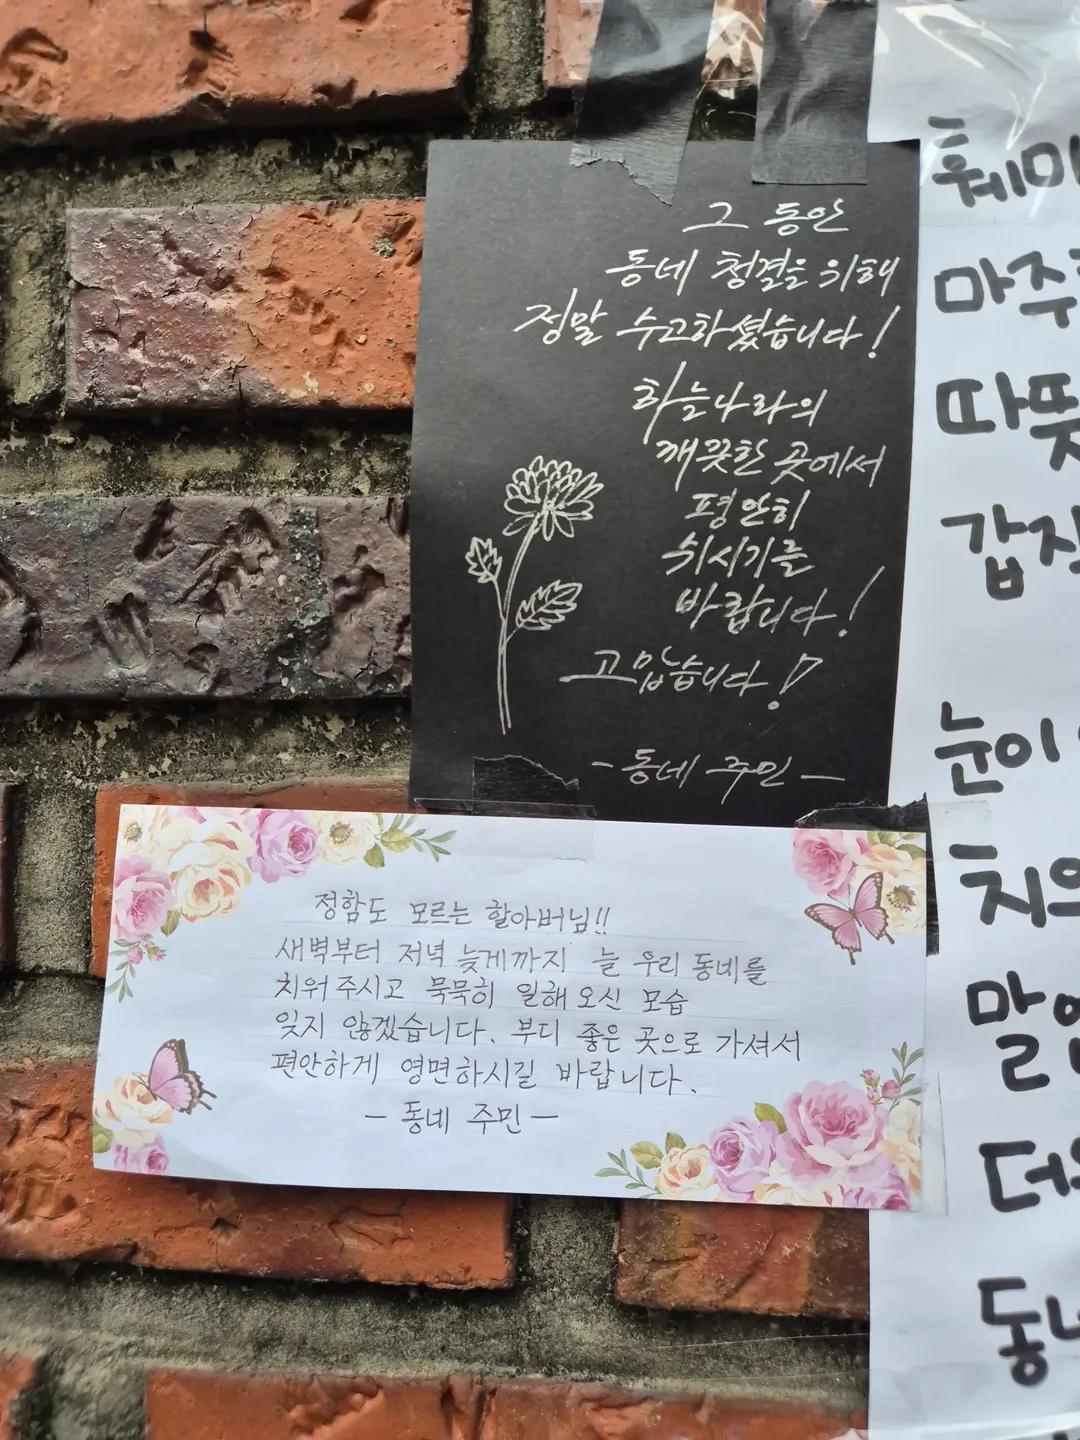 그 동안
동네 청결을 위해
정말 수고하셨습니다!
하늘나라의
깨끗한 곳에서
평안히
쉬시기를
바랍니다!
고맙습니다!
-동네 주민-
정함도 모르는 할아버님!!
새벽부터 저녁 늦게까지 늘 우리 동네를
치워주시고 묵묵히 일해오신 모습
잊지 않겠습니다. 부디 좋은 곳으로 가셔서
편안하게 영면하시길 바랍니다.
- 동네 주민 -
훼미
마주
따뜻
갑
눈이
치
말
더
동네